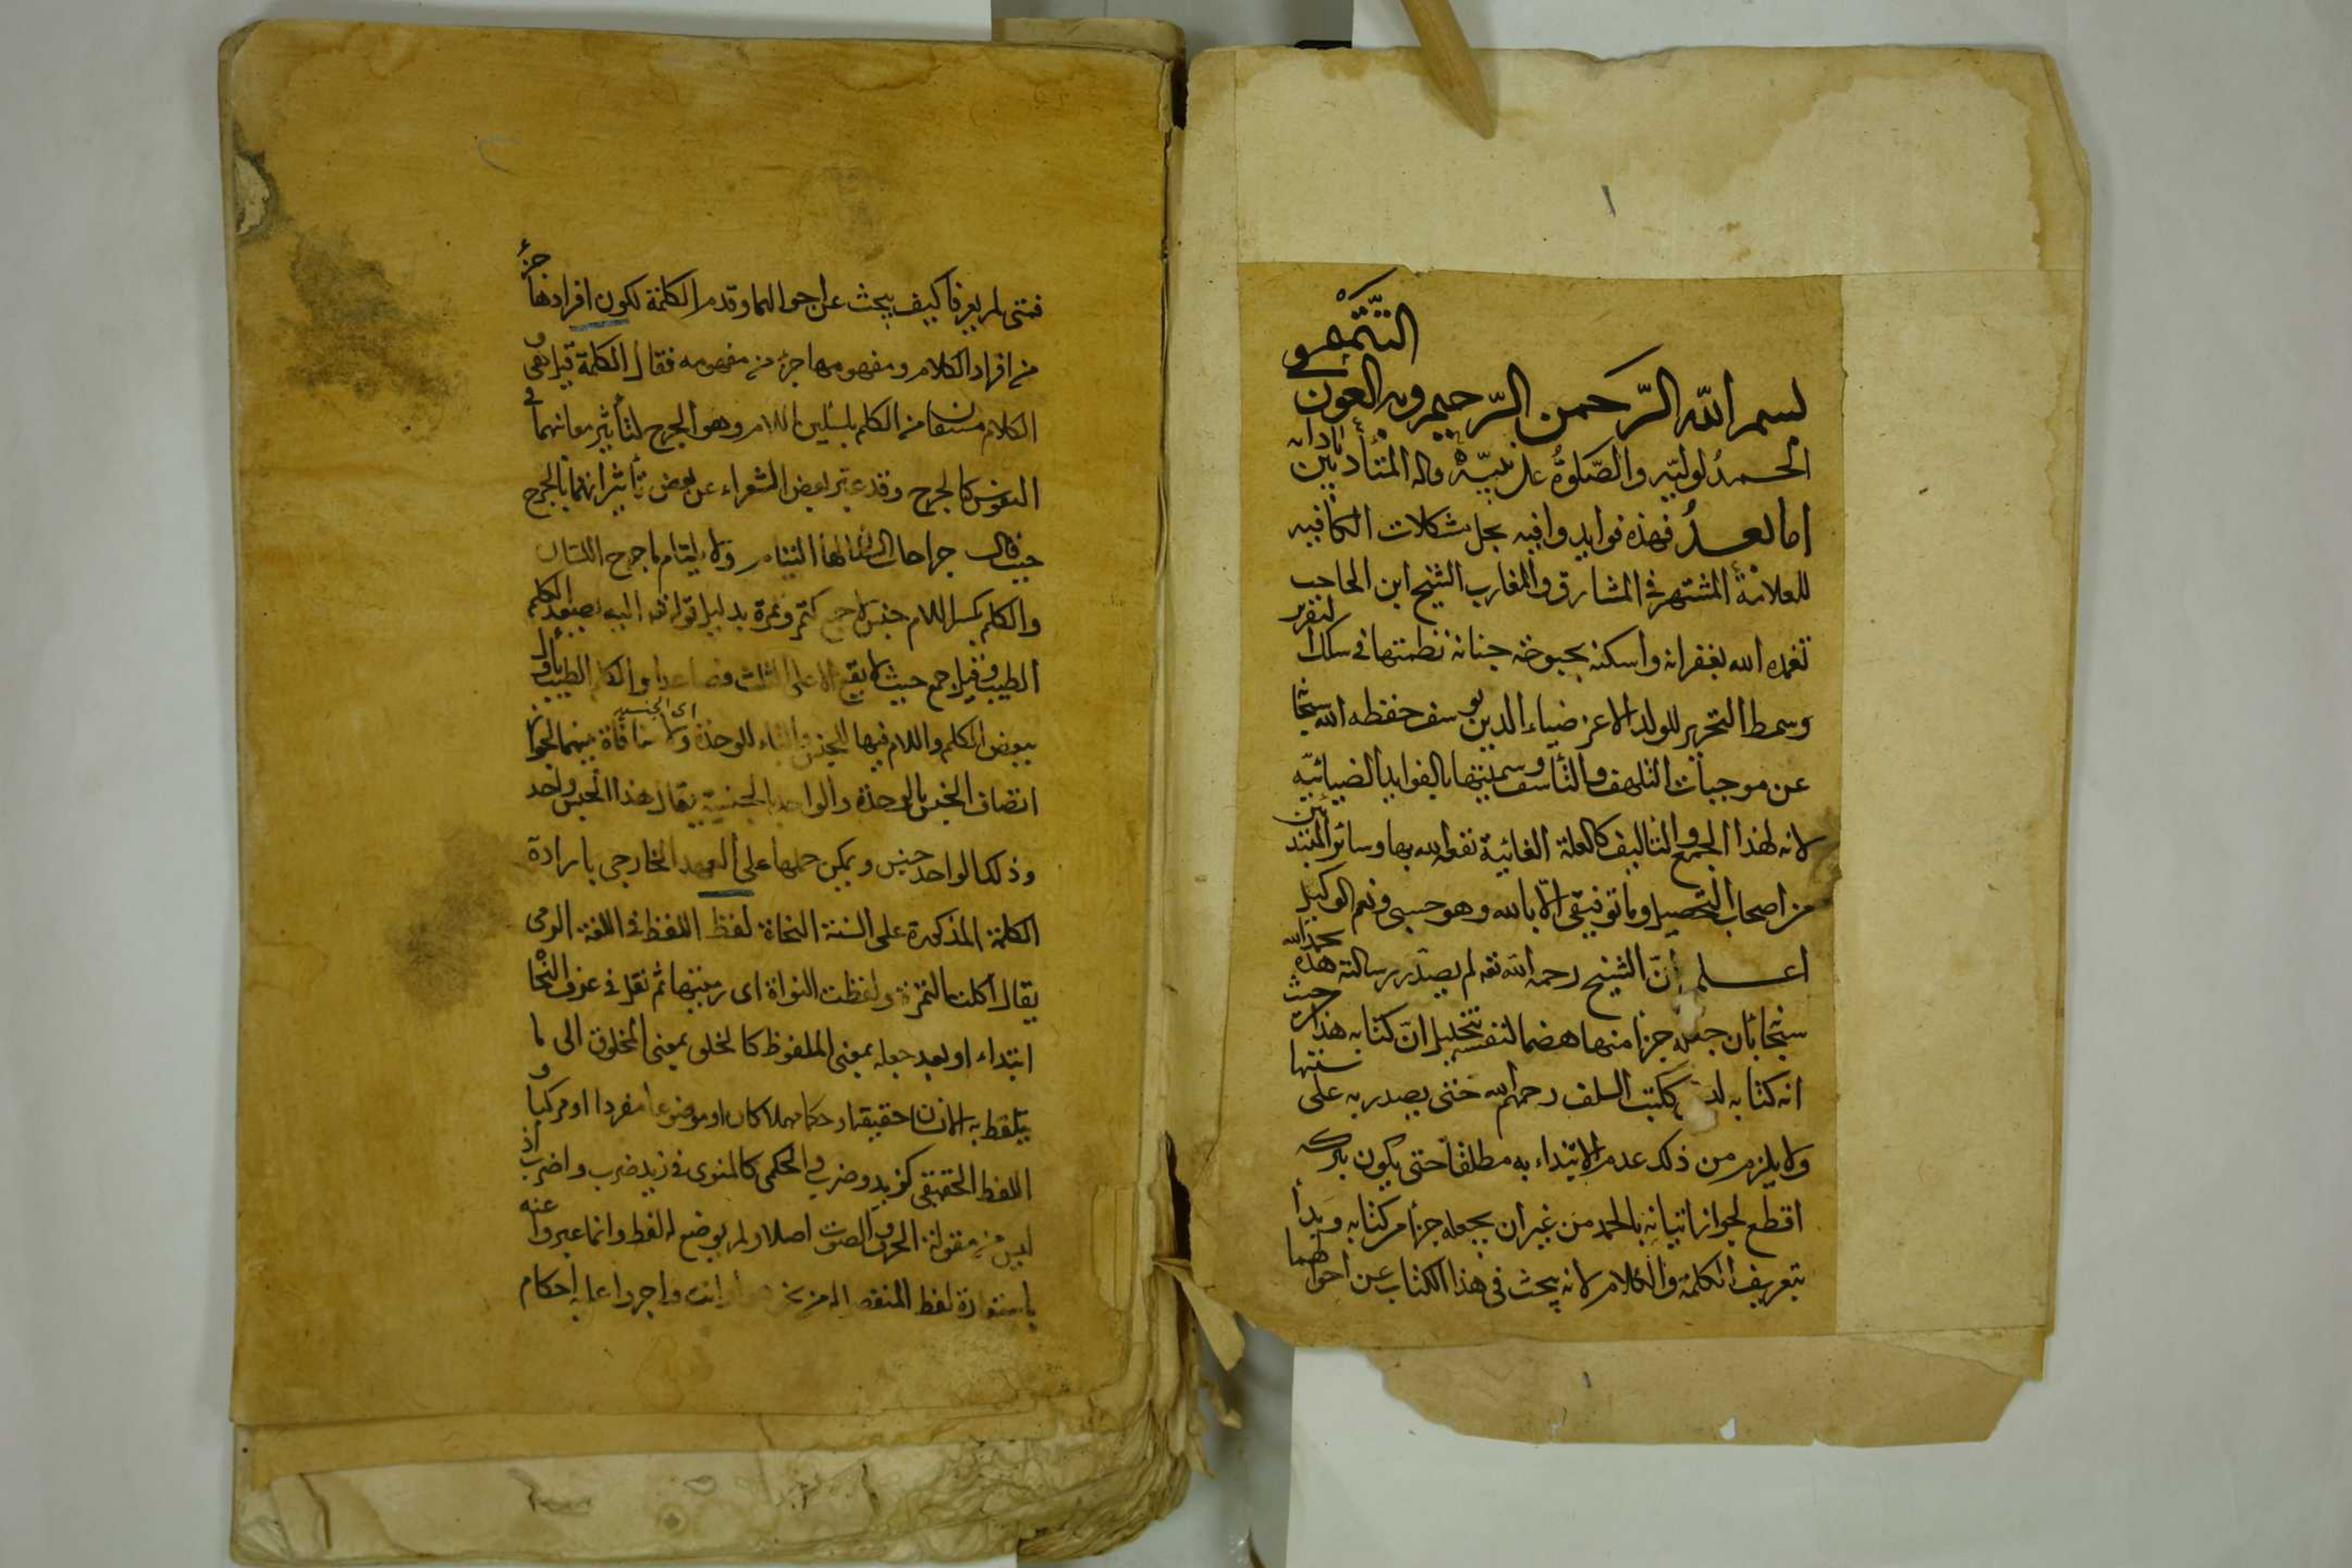 بسم الله الرحمن الرحيم وبه العون
الحمد لوليه والصلوة على نبيه واله المتأدبين بآدابه
اما بعد فهذه فوايد وافيه بحل مشكلات الكافيه
للعلامة المشتهر في المشارق والمغارب الشيخ ابن الحاجب
تغمده الله بغفرانه واسكنه بحبوحة جنانه نظمتها في سلك التقرير
وسمط التحرير للولد الاعز ضياء الدين يوسف حفظه الله سبحا
عن موجبات التلهف والتأسف وسميتها بالفوايد الضيائيه
لانه لهذا الجمع والتاليف كالعلة الغائية نفعه الله بها وسائر المبتدئين
من اصحاب التحصيل وما توفيقي الا بالله وهو حسبي ونعم الوكيل
اعلم ان الشيخ رحمه الله تعه لم يصدر رسالته هذه بحمد الله
سبحا بان جعله جزا منها هضما لنفسه بتخييل ان كتابه هذا من حيث
انه كتابه ككتب السلف رحمهم الله حتى يصدر به على سننها
ولا يلزم من ذلك عدم الابتداء به مطلقا حتى يكون بتركه
اقطع لجواز اتيانه بالحمد من غير ان يجعله جزأ من كتابه وبدأ
بتعريف الكلمة والكلام لانه يبحث في هذا الكتاب عن احوالهما
فمتى لم يعرفا كيف يبحث عن احوالهما وقدم الكلمة لكون افرادها جزء
من افراد الكلام ومفهومها جزء من مفهومه فقال الكلمة قيل هي و
الكلام مشتقان من الكلم بتسكين اللام وهو الجرح لتأثير معانيهما في
النفوس كالجرح وقد عبر بعض الشعراء عن بعض تأثيراتهما بالجرح
حيث قال جراحات السنان لها التيام ولا يلتام ما جرح اللسان
والكلم بكسر اللام جنس لا جمع كتمر وتمرة بدليل قوله تعه اليه يصعد الكلم
الطيب وقيل جمع حيث لا يقع الا على الثلث فصاعدا والكلم الطيب يأول
ببعض الكلم واللام فيها للجنس والتاء للوحدة ولا منافاة بينهما لجواز
اى الجنسية
اتصاف الجنس بالوحدة والواحد بالجنسية يقال هذا الجنس واحد
وذلك الواحد جنس ويمكن حملها على العهد الخارجي بارادة
الكلمة المذكورة على السنة النحاة لفظ اللفظ في اللغة الرمى
يقال اكلت التمرة ولفظت النواة اى رميتها ثم نقل في عرف النحا
ابتداء او بعد جعله بمعنى الملفوظ كالخلق بمعنى المخلوق الى ما
يتلفظ به الانسان حقيقة او حكما مهملا كان او موضوعا مفردا او مركبا و
اللفظ الحقيقي كزيد وضرب والحكمى كالمنوى في زيد ضرب واضرب اذ
ليس من مقولة الحرف والصوت اصلا ولم يوضع له لفظ وانما عبروا عنه
باستعارة لفظ المنفصل له من نحو هو وانت واجروا عليه احكام